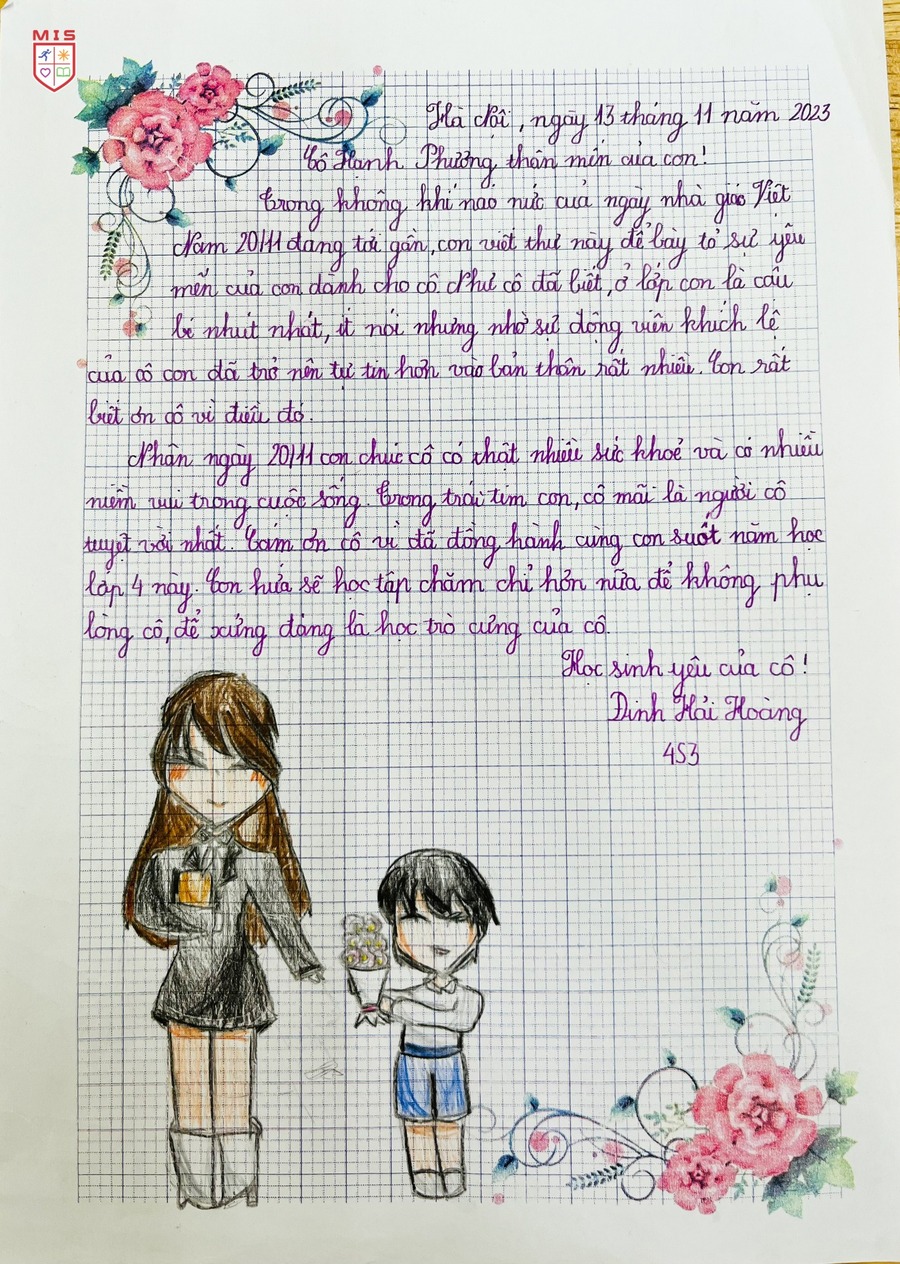 MIS
Hà Nội, ngày 13 tháng 11 năm 2023
Cô Hạnh Phương thân mến của con!
Trong không khí náo nức của ngày nhà giáo Việt
Nam 20/11 đang tới gần, con viết thư này để bày tỏ sự yêu
mến của con dành cho cô. Như cô đã biết, ở lớp con là cậu
bé nhút nhát, ít nói nhưng nhờ sự động viên khích lệ
của cô con đã trở nên tự tin hơn vào bản thân rất nhiều. Con rất
biết ơn cô vì điều đó.
Nhân ngày 20/11 con chúc cô có thật nhiều sức khoẻ và có nhiều
niềm vui trong cuộc sống. Trong trái tim con, cô mãi là người cô
tuyệt vời nhất. Cám ơn cô vì đã đồng hành cùng con suốt năm học
lớp 4 này. Con hứa sẽ học tập chăm chỉ hơn nữa để không phụ
lòng cô, để xứng đáng là học trò cưng của cô.
Học sinh yêu của cô!
Đinh Hải Hoàng
4S3